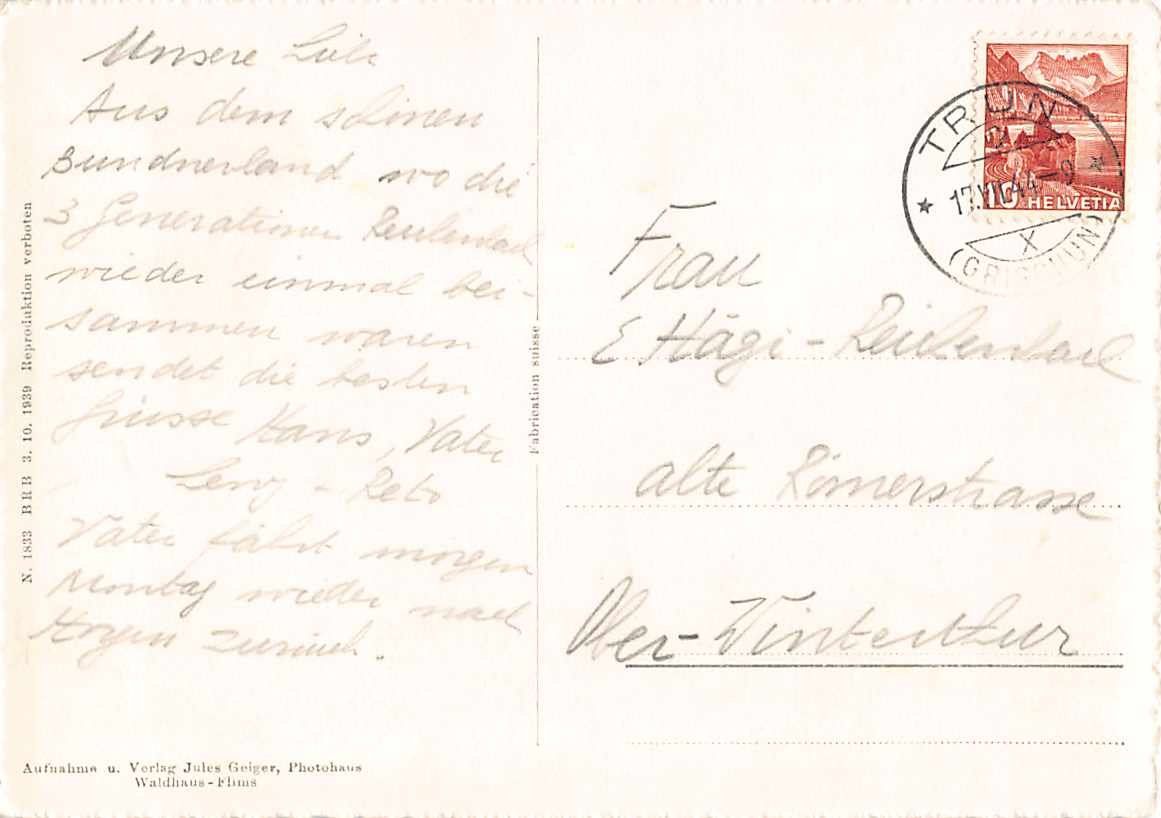 Unsere Liebe
Aus dem schönen
Bundnerland wo die
3 Generationen
wieder einmal bei-
sammen waren
sendet die besten
Grüsse Hans, Vater
Reto
Vater fährt morgen
Montag wieder nach
Horgen zurück.
N. 1833 BRB 3. 10. 1939 Reproduktion verboten
Fabrication suisse
Aufnahme u. Verlag Jules Geiger, Photohaus
Waldhaus-Flims
TRUN
17.VII.44-9
X
(GRISCHUN)
10 HELVETIA
Frau
E Hägi-
alte Römerstrasse
Ober-Winterthur